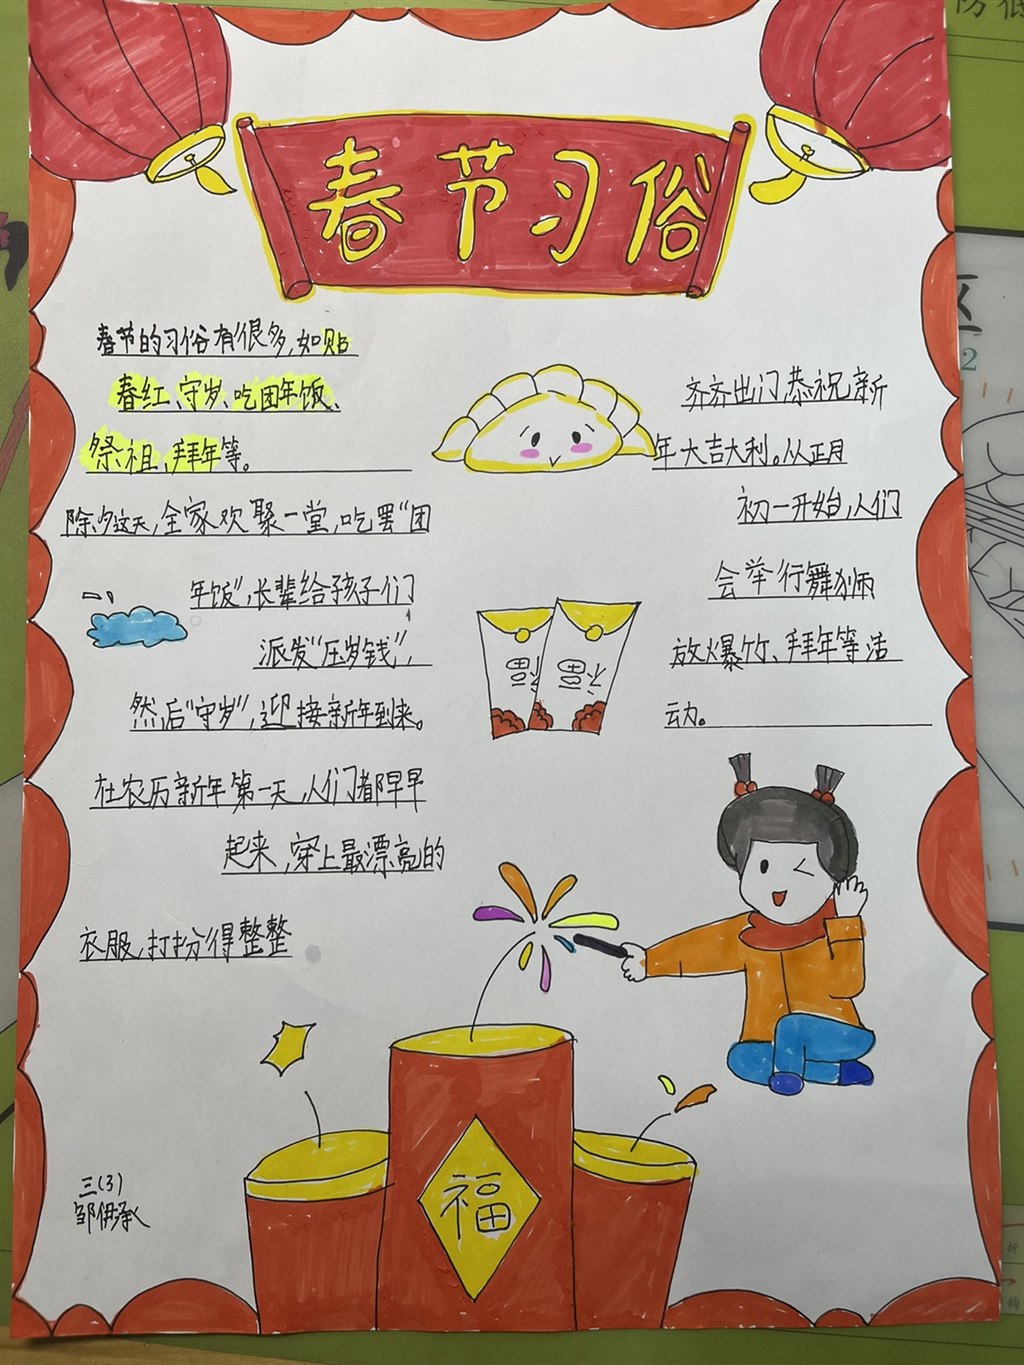 春节习俗
春节的习俗有很多,如贴
春红、守岁、吃团年饭、
祭祖、拜年等。
除夕这天,全家欢聚一堂,吃罢“团
年饭”,长辈给孩子们
派发“压岁钱”,
然后“守岁”,迎接新年到来。
在农历新年第一天,人们都早早
起来,穿上最漂亮的
衣服,打扮得整整
齐齐出门,恭祝新
年大吉大利。从正月
初一开始,人们
会举行舞狮
放爆竹、拜年等活
动。
福
福
福
三(3)
邹伊承
2